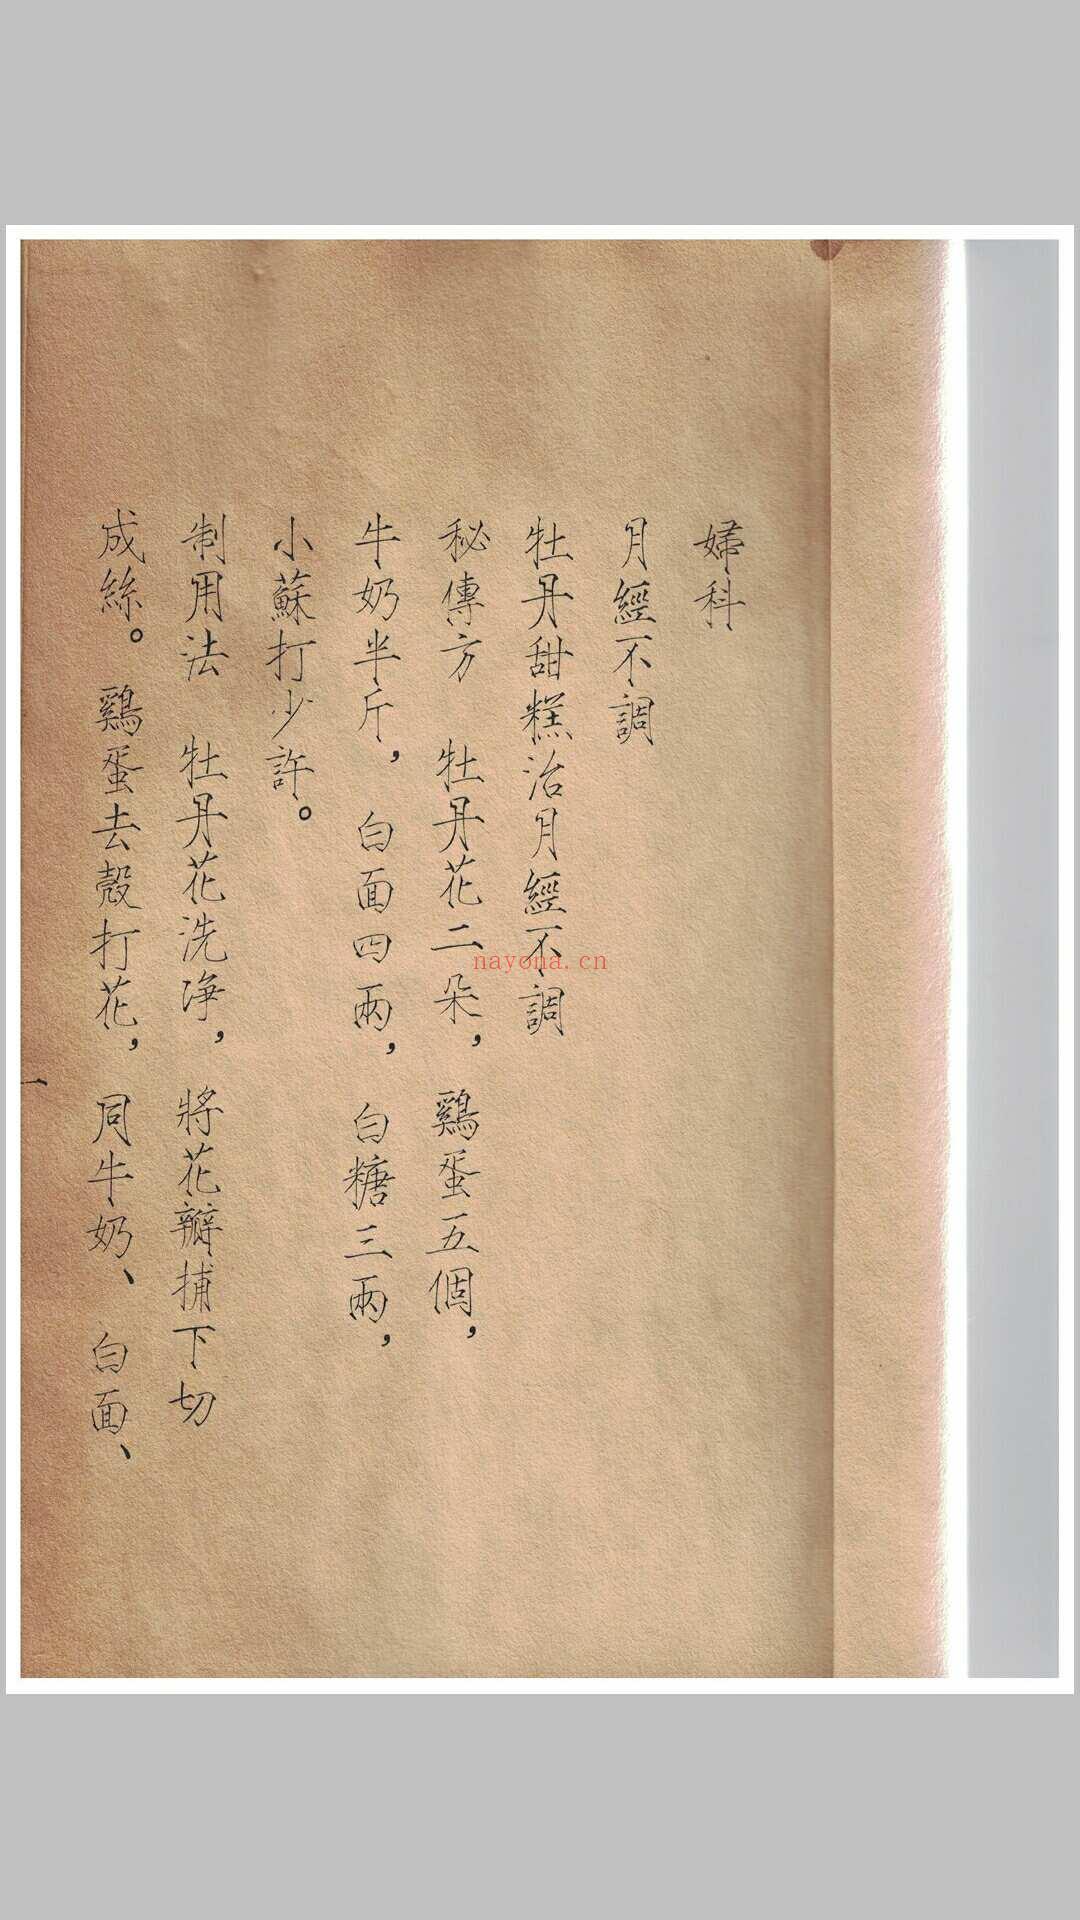 婦科
月經不調
牡丹甜糕治月經不調
秘傳方　牡丹花二朵，鷄蛋五個，
牛奶半斤，白面四兩，白糖三兩，
小蘇打少許。
制用法　牡丹花洗净，將花瓣捕下切
成絲。鷄蛋去殼打花，同牛奶、白面、
一
nayona.cn